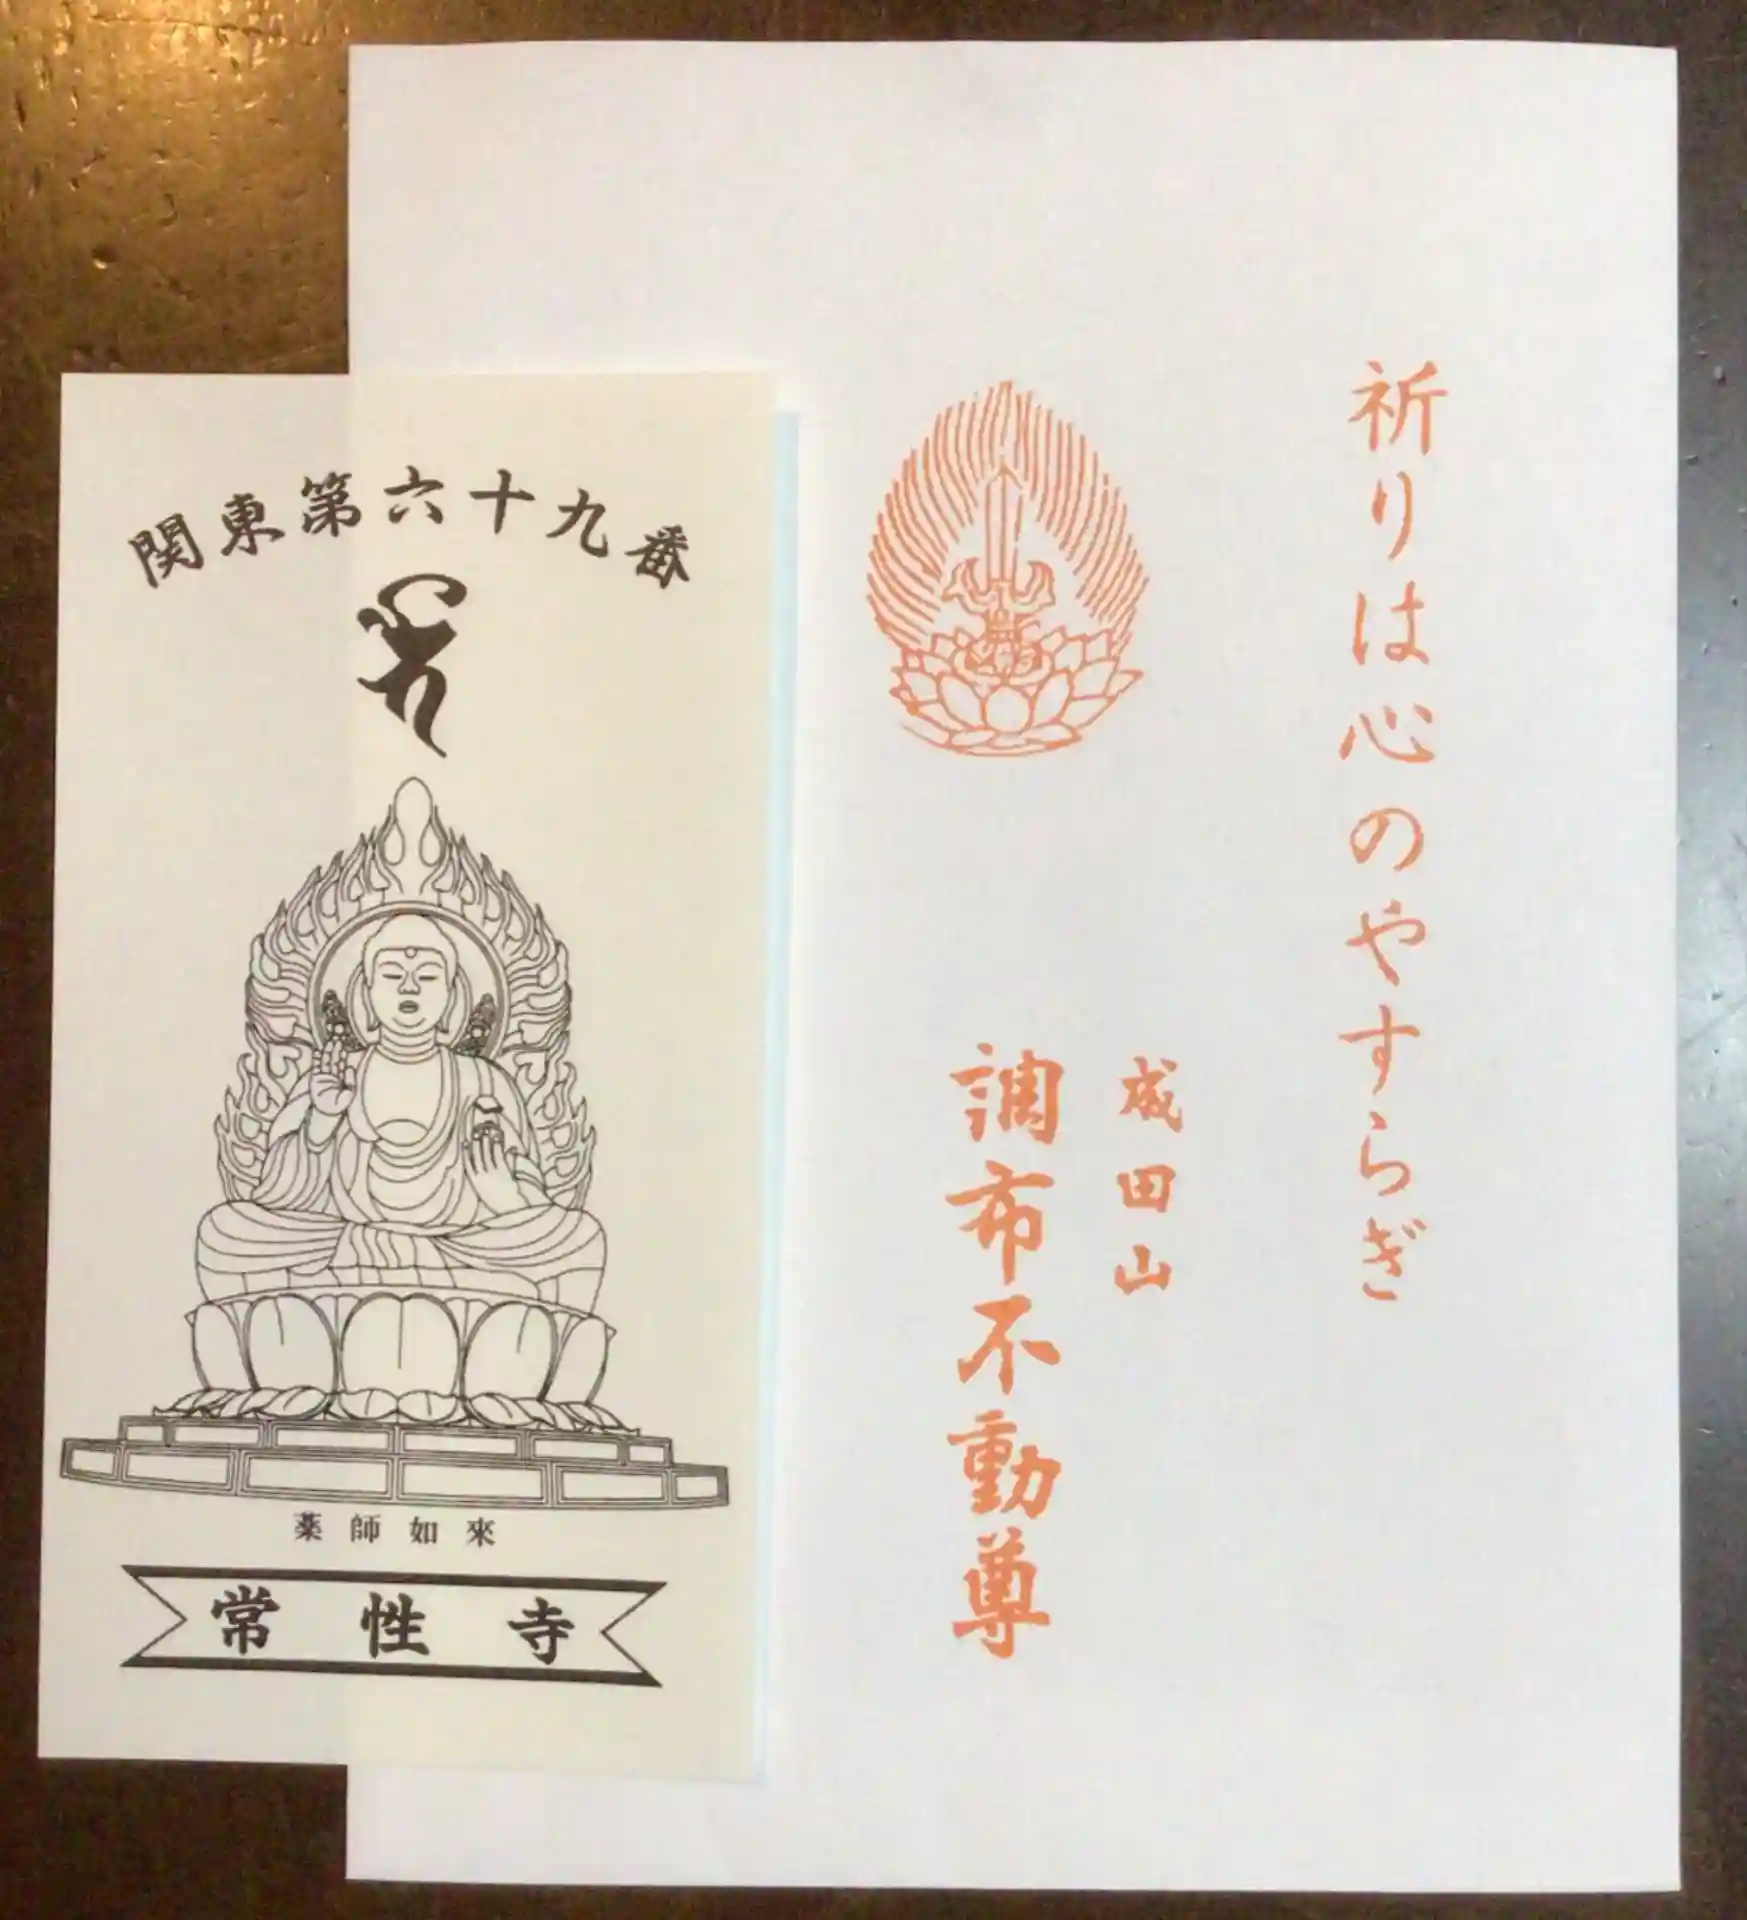 祈りは心のやすらぎ
成田山
調布不動尊
関東第六十九番
薬師如來
常性寺